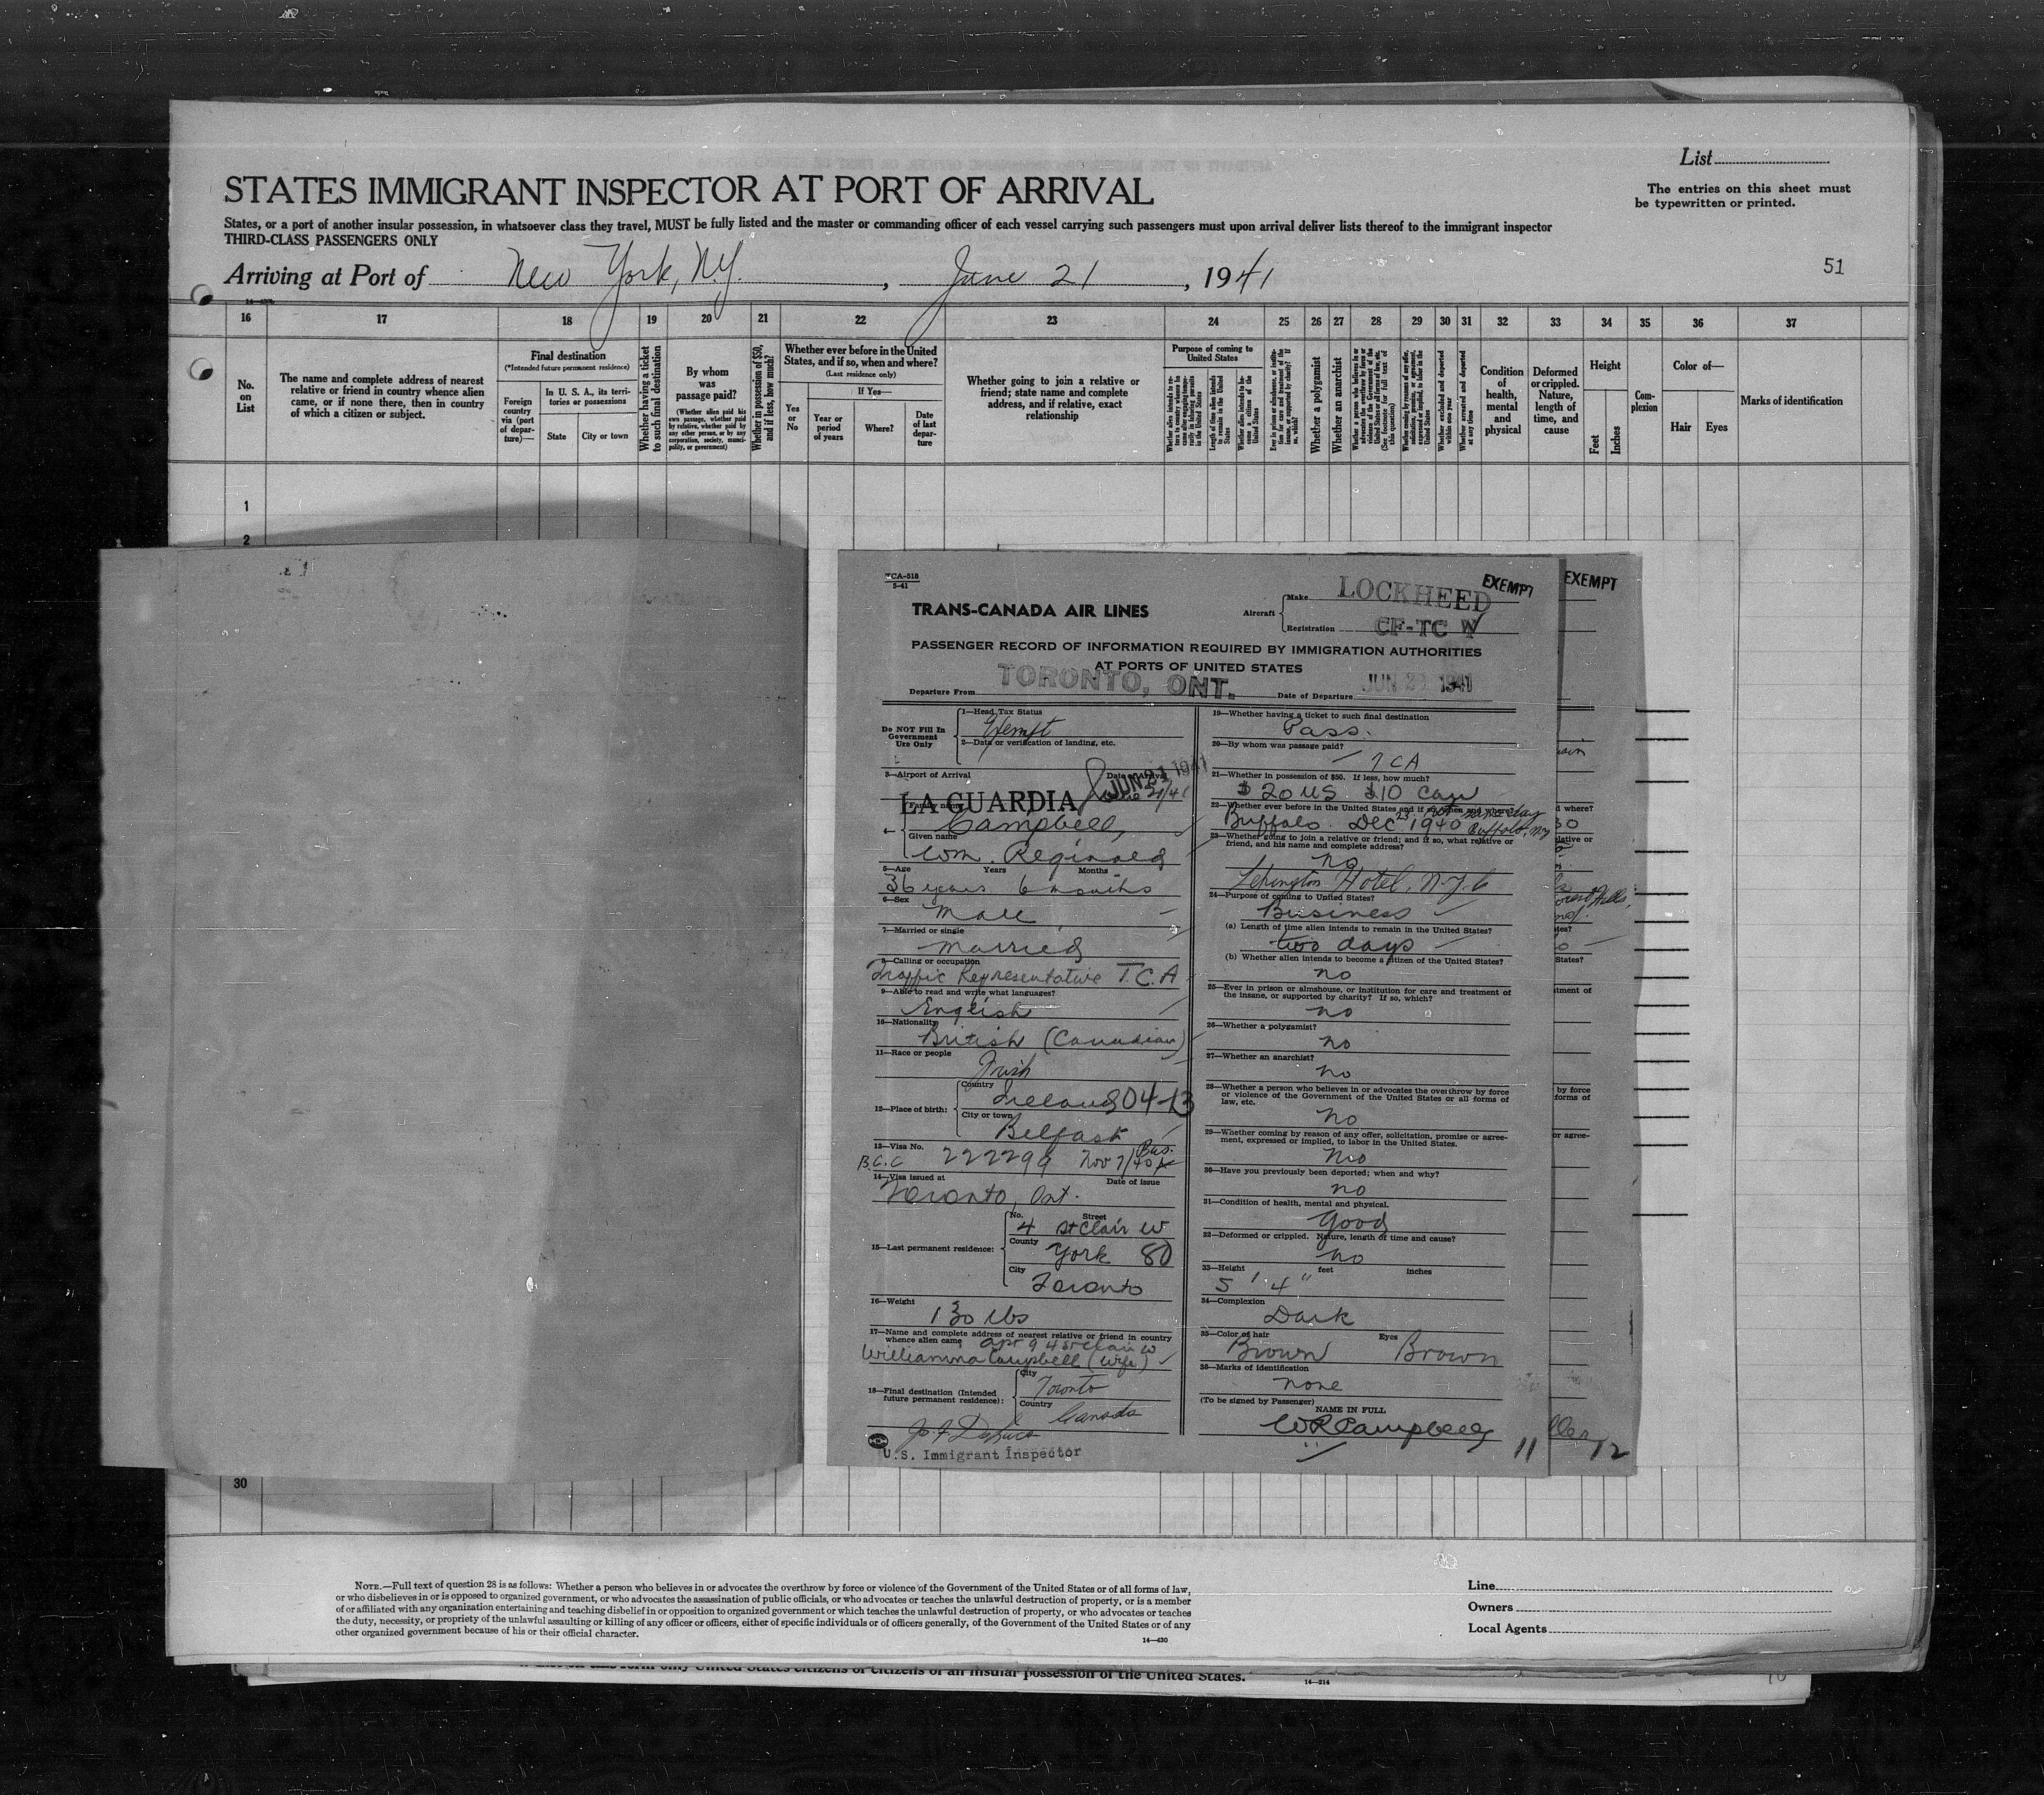 List
The entries on this sheet must
be typewritten or printed.
STATES IMMIGRANT INSPECTOR AT PORT OF ARRIVAL
States, or a port of another insular possession, in whatsoever class they travel, MUST be fully listed and the master or commanding officer of each vessel carrying such passengers must upon arrival deliver lists thereof to the immigrant inspector
THIRD-CLASS PASSENGERS ONLY
Arriving at Port of New York, N.Y. , June 21 , 1941
51
16 17 18 19 20 21 22 23 24 25 26 27 28 29 30 31 32 33 34 35 36 37
No. on List
The name and complete address of nearest
relative or friend in country whence alien
came, or if none there, then in country
of which a citizen or subject.
Final destination
(*Intended future permanent residence)
Foreign country via (port of departure)—
In U. S. A., its territories or possessions
State
City or town
Whether having a ticket to such final destination
By whom was passage paid?
(Whether alien paid his own passage, whether paid by relative, whether paid by any other person, or by any corporation, society, municipality, or government)
Whether in possession of $50, and if less, how much?
Whether ever before in the United
States, and if so, when and where?
(Last residence only)
Yes or No
If Yes—
Year or period of years
Where?
Date of last departure
Whether going to join a relative or
friend; state name and complete
address, and if relative, exact
relationship
Purpose of coming to United States
Length of time alien intends to remain in the United States
Whether alien intends to become a citizen of the United States
Whether a polygamist
Whether an anarchist
Whether arrested and deported at any time
Condition of health, mental and physical
Deformed or crippled. Nature, length of time, and cause
Height
Feet
Inches
Complexion
Color of—
Hair
Eyes
Marks of identification
1
2
TCA-518
5-41
TRANS-CANADA AIR LINES
Aircraft
Make LOCKHEED
Registration CF-TC W
EXEMPT
EXEMPT
PASSENGER RECORD OF INFORMATION REQUIRED BY IMMIGRATION AUTHORITIES
AT PORTS OF UNITED STATES
Departure From TORONTO, ONT. Date of Departure JUN 1941
Do NOT Fill In
Government
Use Only
1—Head Tax Status
Exempt
2—Data or verification of landing, etc.
3—Airport of Arrival
Date of Arrival
JUN 21 1941
LA GUARDIA
4—
Family name
Campbell,
Given name
Wm. Reginald
5—Age Years Months
36 years 6 months
6—Sex
Male
7—Married or single
Married
8—Calling or occupation
Traffic Representative T.C.A
9—Able to read and write what languages?
English
10—Nationality
British (Canadian)
11—Race or people
Irish
12—Place of birth:
Country
Ireland 04-13
City or town
Belfast
13—Visa No.
B.C.C 222299 Nov 7/40 Bus.
14—Visa issued at Date of issue
Toronto, Ont.
15—Last permanent residence:
No. Street
4 St Clair W
County
York 80
City
Toronto
16—Weight
130 lbs
17—Name and complete address of nearest relative or friend in country
whence alien came Apt 9 4 St Clair W
Williamina Campbell (wife)
18—Final destination (Intended
future permanent residence):
City
Toronto
Country
Canada
U.S. Immigrant Inspector
19—Whether having a ticket to such final destination
Pass.
20—By whom was passage paid?
TCA
21—Whether in possession of $50. If less, how much?
$20 US $10 Can
22—Whether ever before in the United States and if so, when and where?
Buffalo Dec 23 1940 Buffalo, NY
23—Whether going to join a relative or friend; and if so, what relative or
friend, and his name and complete address?
no
Lexington Hotel, N.Y.C
24—Purpose of coming to United States?
Business
(a) Length of time alien intends to remain in the United States?
two days
(b) Whether alien intends to become a citizen of the United States?
no
25—Ever in prison or almshouse, or institution for care and treatment of
the insane, or supported by charity? If so, which?
no
26—Whether a polygamist?
no
27—Whether an anarchist?
no
28—Whether a person who believes in or advocates the overthrow by force
or violence of the Government of the United States or all forms of
law, etc.
no
29—Whether coming by reason of any offer, solicitation, promise or agree-
ment, expressed or implied, to labor in the United States.
No
30—Have you previously been deported; when and why?
no
31—Condition of health, mental and physical.
Good
32—Deformed or crippled. Nature, length of time and cause?
no
33—Height feet inches
5' 4"
34—Complexion
Dark
35—Color of hair Eyes
Brown Brown
36—Marks of identification
none
(To be signed by Passenger)
NAME IN FULL
WR Campbell
11
12
30
NOTE.—Full text of question 28 is as follows: Whether a person who believes in or advocates the overthrow by force or violence of the Government of the United States or of all forms of law,
or who disbelieves in or is opposed to organized government, or who advocates the assassination of public officials, or who advocates or teaches the unlawful destruction of property, or is a member
of or affiliated with any organization entertaining and teaching disbelief in or opposition to organized government or which teaches the unlawful destruction of property, or who advocates or teaches
the duty, necessity, or propriety of the unlawful assaulting or killing of any officer or officers, either of specific individuals or of officers generally, of the Government of the United States or of any
other organized government because of his or their official character.
14—430
Line
Owners
Local Agents
List on this form only United States citizens or citizens of an insular possession of the United States.
14—214